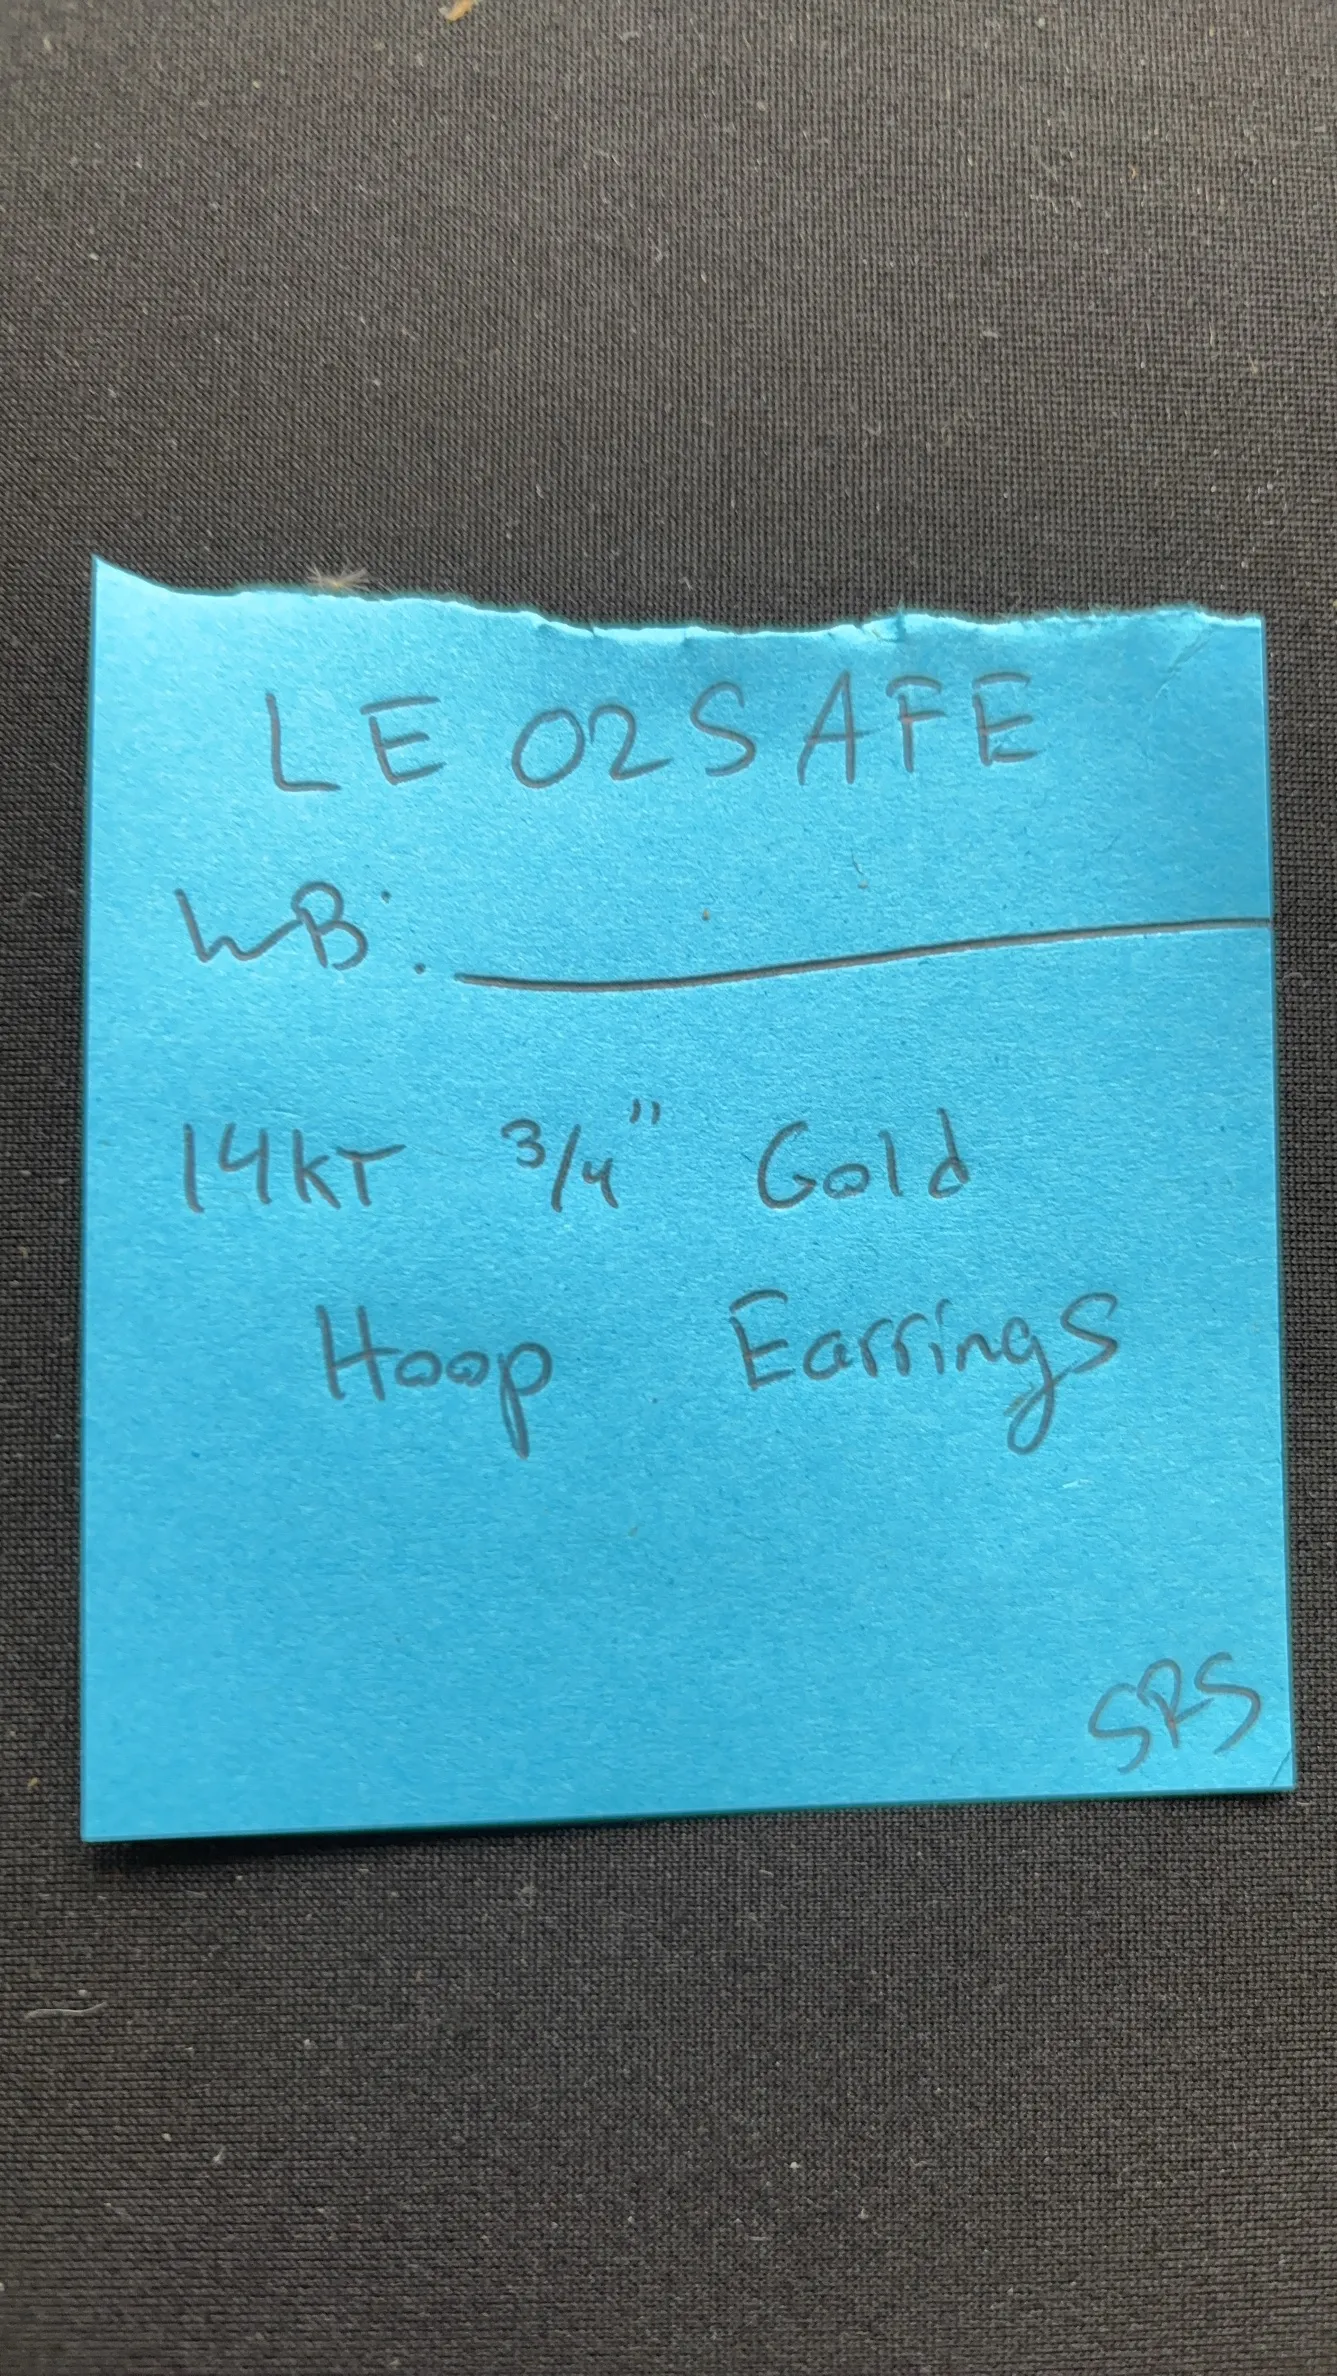 LE 02SAFE
WB: ____________
14KT 3/4" Gold
Hoop Earrings
SRS